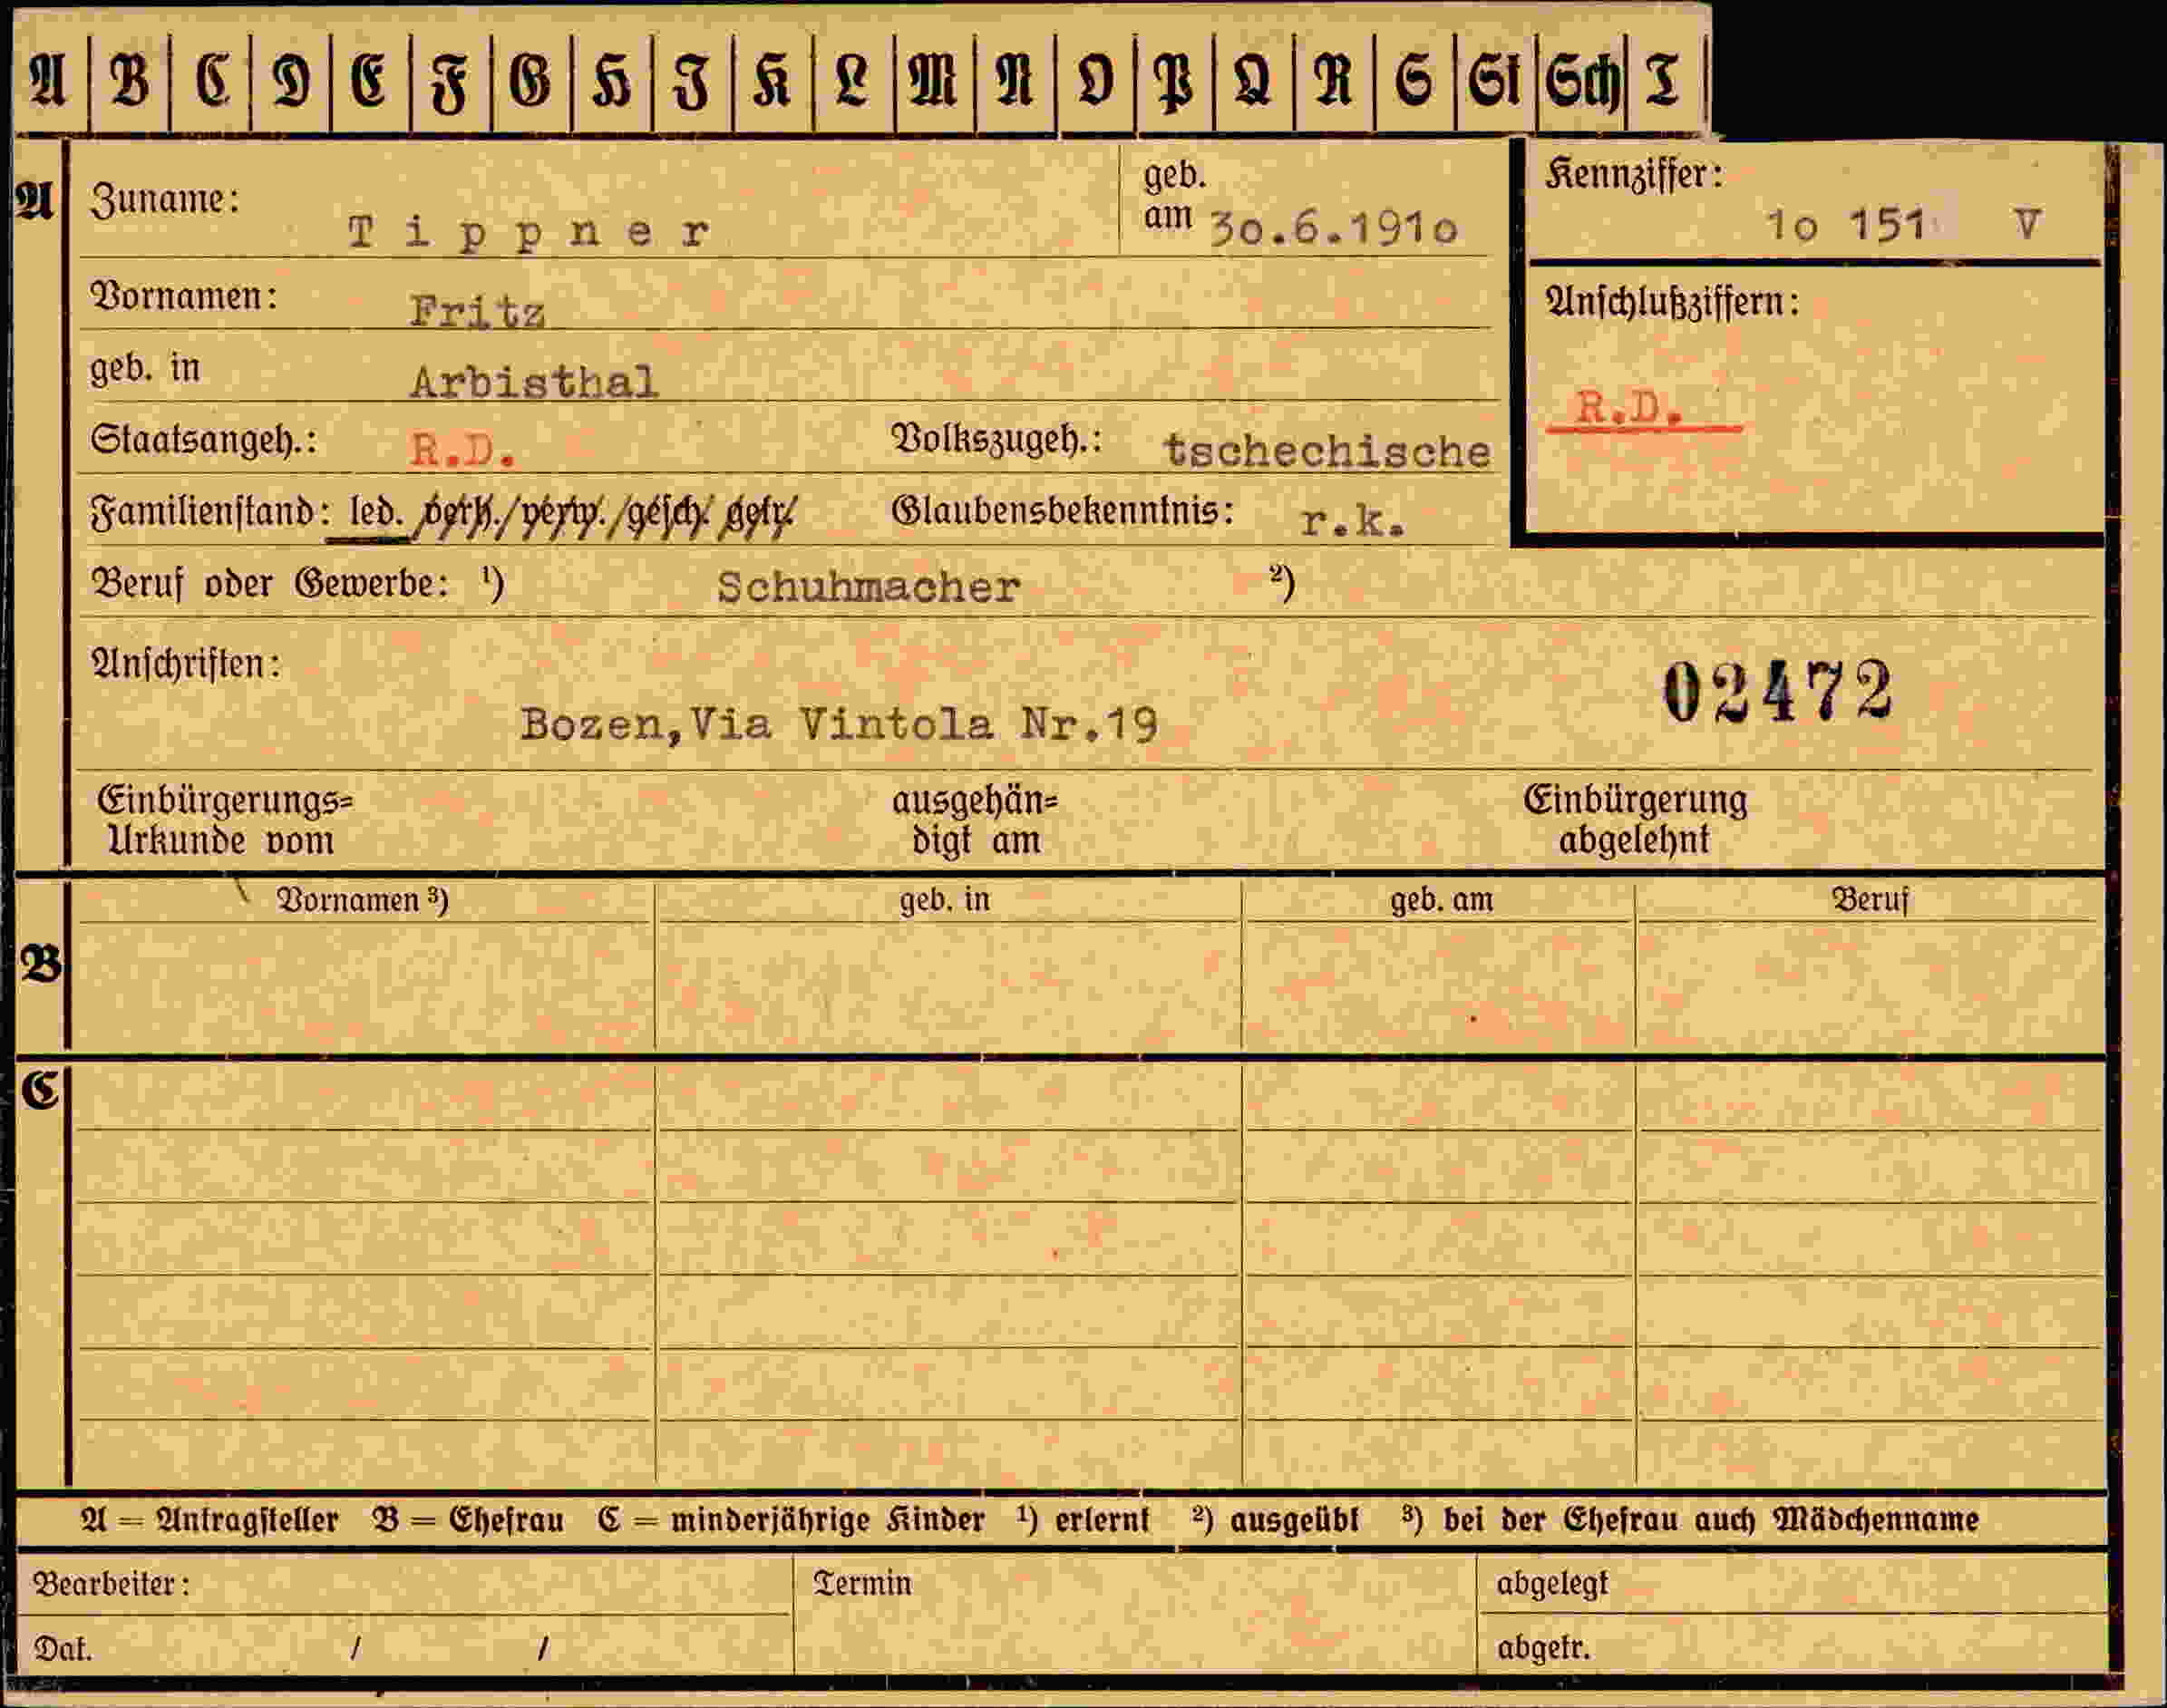 A B C D E F G H I K L M N O P Q R S St Sch T
A
Zuname: Tippner
geb. am 30.6.1910
Kennziffer:
1o 151 V
Vornamen: Fritz
Anschlußziffern:
R.D.
geb. in Arbisthal
Staatsangeh.: R.D. Volkszugeh.: tschechische
Familienstand: led. verh./verw./gesch. getr. Glaubensbekenntnis: r.k.
Beruf oder Gewerbe: ¹) Schuhmacher ²)
Anschriften:
02472
Bozen,Via Vintola Nr.19
Einbürgerungs=
Urkunde vom
ausgehän=
digt am
Einbürgerung
abgelehnt
B
Vornamen ³) geb. in geb. am Beruf
C
A = Antragsteller B = Ehefrau C = minderjährige Kinder ¹) erlernt ²) ausgeübt ³) bei der Ehefrau auch Mädchenname
Bearbeiter: Termin abgelegt
Dat. / / abgetr.